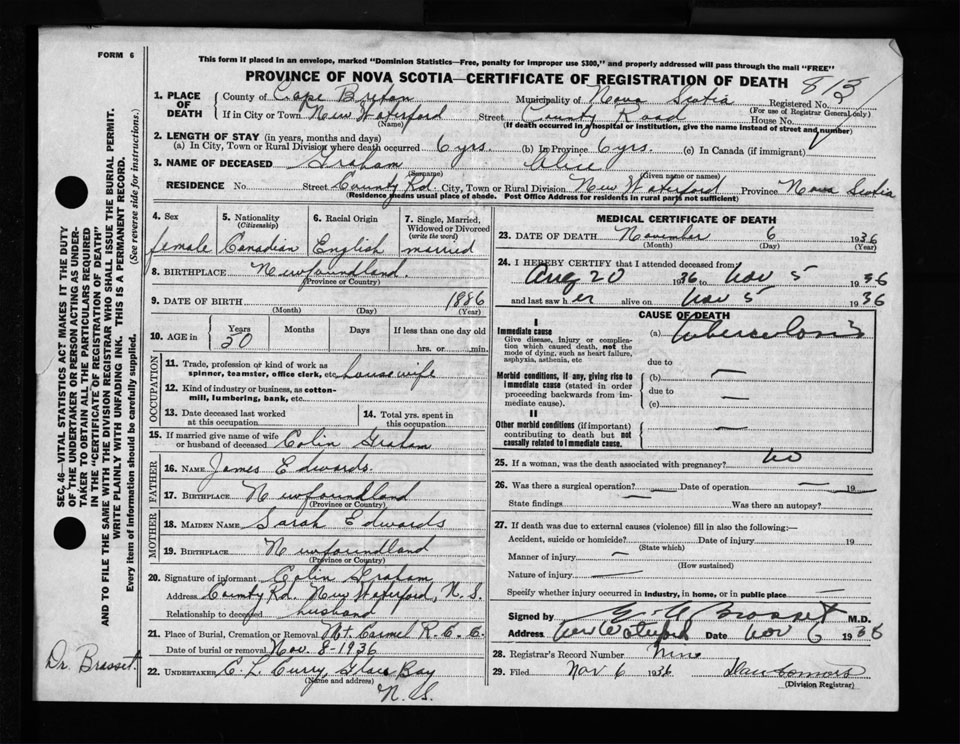 FORM 6
This form if placed in an envelope, marked "Dominion Statistics—Free, penalty for improper use $300," and properly addressed will pass through the mail "FREE"
PROVINCE OF NOVA SCOTIA—CERTIFICATE OF REGISTRATION OF DEATH
813
SEC. 46—VITAL STATISTICS ACT MAKES IT THE DUTY
OF THE UNDERTAKER OR PERSON ACTING AS UNDER-
TAKER TO OBTAIN ALL THE PARTICULARS REQUIRED
IN THE "CERTIFICATE OF REGISTRATION OF DEATH"
AND TO FILE THE SAME WITH THE DIVISION REGISTRAR WHO SHALL ISSUE THE BURIAL PERMIT.
WRITE PLAINLY WITH UNFADING INK. THIS IS A PERMANENT RECORD.
Every item of information should be carefully supplied. (See reverse side for instructions.)
1. PLACE OF DEATH County of Cape Breton Municipality of Nova Scotia Registered No.
(For use of Registrar General only)
If in City or Town New Waterford Street County Road House No.
(Name) (If death occurred in hospital or institution, give the name instead of street and number)
2. LENGTH OF STAY (in years, months and days)
(a) In City, Town or Rural Division where death occurred 6 yrs. (b) In Province 6 yrs. (c) In Canada (if immigrant)
3. NAME OF DECEASED Graham Alice
(Surname) (Given name or names)
RESIDENCE No. Street County Rd. City, Town or Rural Division New Waterford Province Nova Scotia
(Residence means usual place of abode. Post Office Address for residents in rural parts not sufficient)
4. Sex 5. Nationality (Citizenship) 6. Racial Origin 7. Single, Married, Widowed or Divorced (write the word)
female Canadian English married
8. BIRTHPLACE Newfoundland.
(Province or Country)
9. DATE OF BIRTH 1886
(Month) (Day) (Year)
10. AGE in Years Months Days If less than one day old
50 hrs. or min.
OCCUPATION
11. Trade, profession or kind of work as
spinner, teamster, office clerk, etc. housewife
12. Kind of industry or business, as cotton-
mill, lumbering, bank, etc.
13. Date deceased last worked at this occupation 14. Total yrs. spent in this occupation
15. If married give name of wife
or husband of deceased Colin Graham
FATHER
16. NAME James Edwards.
17. BIRTHPLACE Newfoundland
(Province or Country)
MOTHER
18. MAIDEN NAME Sarah Edwards
19. BIRTHPLACE Newfoundland
(Province or Country)
20. Signature of informant Colin Graham
Address County Rd. New Waterford, N.S.
Relationship to deceased husband
21. Place of Burial, Cremation or Removal Mt. Carmel R.C.C.
Date of burial or removal Nov. 8-1936
22. UNDERTAKER C. L. Curry, Glace Bay
(Name and address) N.S.
Dr. Brasset.
MEDICAL CERTIFICATE OF DEATH
23. DATE OF DEATH November 6 1936
(Month) (Day) (Year)
24. I HEREBY CERTIFY that I attended deceased from
Aug 20 1936 to Nov 5 1936
and last saw her alive on Nov 5 1936
CAUSE OF DEATH
I
Immediate cause (a) tuberculosis
Give disease, injury or complica-
tion which caused death, not the
mode of dying, such as heart failure,
asphyxia, asthenia, etc
due to
Morbid conditions, if any, giving rise to (b) —
immediate cause (stated in order due to
proceeding backwards from im- (c) —
mediate cause).
II
Other morbid conditions (if important) —
contributing to death but not
causally related to immediate cause.
25. If a woman, was the death associated with pregnancy? no
26. Was there a surgical operation? — Date of operation — 19
State findings — Was there an autopsy? —
27. If death was due to external causes (violence) fill in also the following:—
Accident, suicide or homicide? Date of injury 19
(State which)
Manner of injury —
(How sustained)
Nature of injury —
Specify whether injury occurred in industry, in home, or in public place —
Signed by Brasset M.D.
Address New Waterford Date Nov 6 1936
28. Registrar's Record Number Nine
29. Filed Nov 6 1936
(Division Registrar)